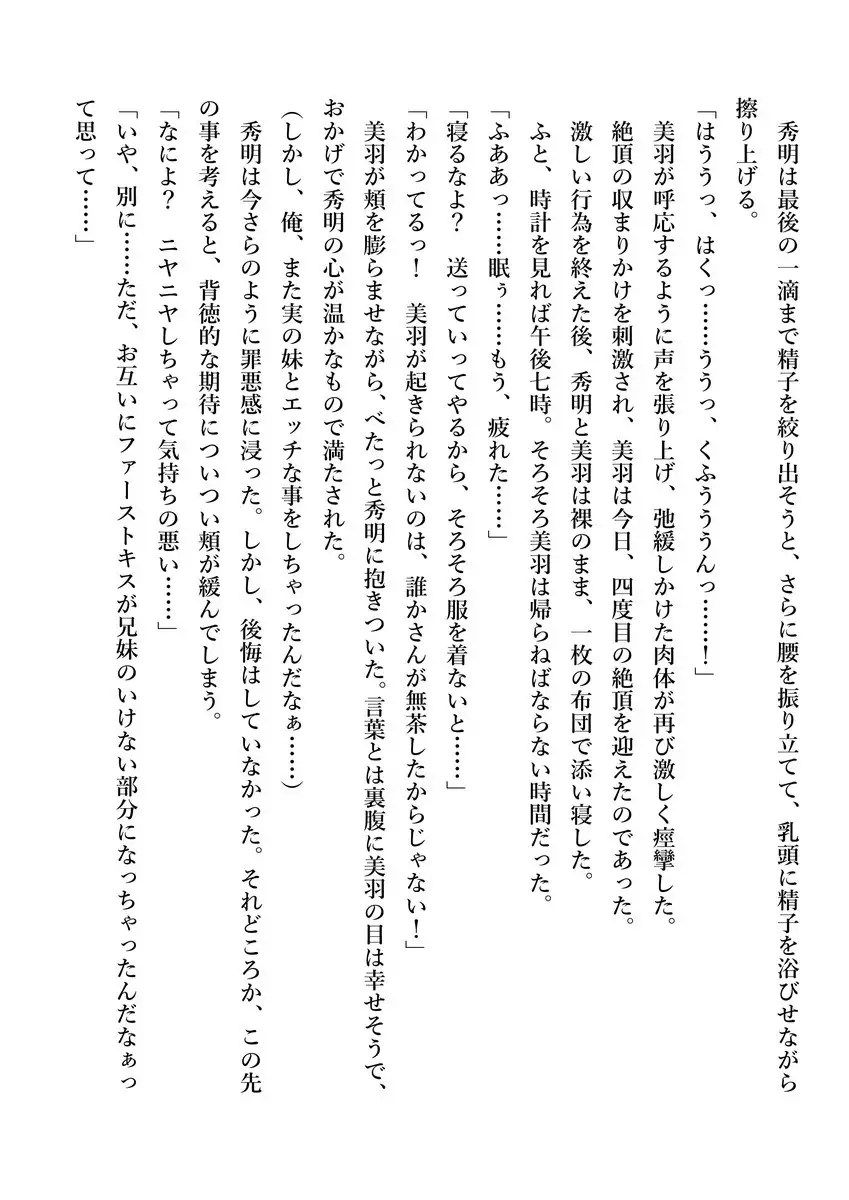 秀明は最後の一滴まで精子を絞り出そうと、さらに腰を振り立てて、乳頭に精子を浴びせながら
擦り上げる。
「はううっ、はくっ……ううっ、くふうううんっ……！」
美羽が呼応するように声を張り上げ、弛緩しかけた肉体が再び激しく痙攣した。
絶頂の収まりかけを刺激され、美羽は今日、四度目の絶頂を迎えたのであった。
激しい行為を終えた後、秀明と美羽は裸のまま、一枚の布団で添い寝した。
ふと、時計を見れば午後七時。そろそろ美羽は帰らねばならない時間だった。
「ふああっ……眠ぅ……もう、疲れた……」
「寝るなよ？　送っていってやるから、そろそろ服を着ないと……」
「わかってるっ！　美羽が起きられないのは、誰かさんが無茶したからじゃない！」
美羽が頬を膨らませながら、べたっと秀明に抱きついた。言葉とは裏腹に美羽の目は幸せそうで、
おかげで秀明の心が温かなもので満たされた。
(しかし、俺、また実の妹とエッチな事をしちゃったんだなぁ……)
秀明は今さらのように罪悪感に浸った。しかし、後悔はしていなかった。それどころか、この先
の事を考えると、背徳的な期待についつい頬が緩んでしまう。
「なによ？　ニヤニヤしちゃって気持ちの悪い……」
「いや、別に……ただ、お互いにファーストキスが兄妹のいけない部分になっちゃったんだなぁっ
て思って……」